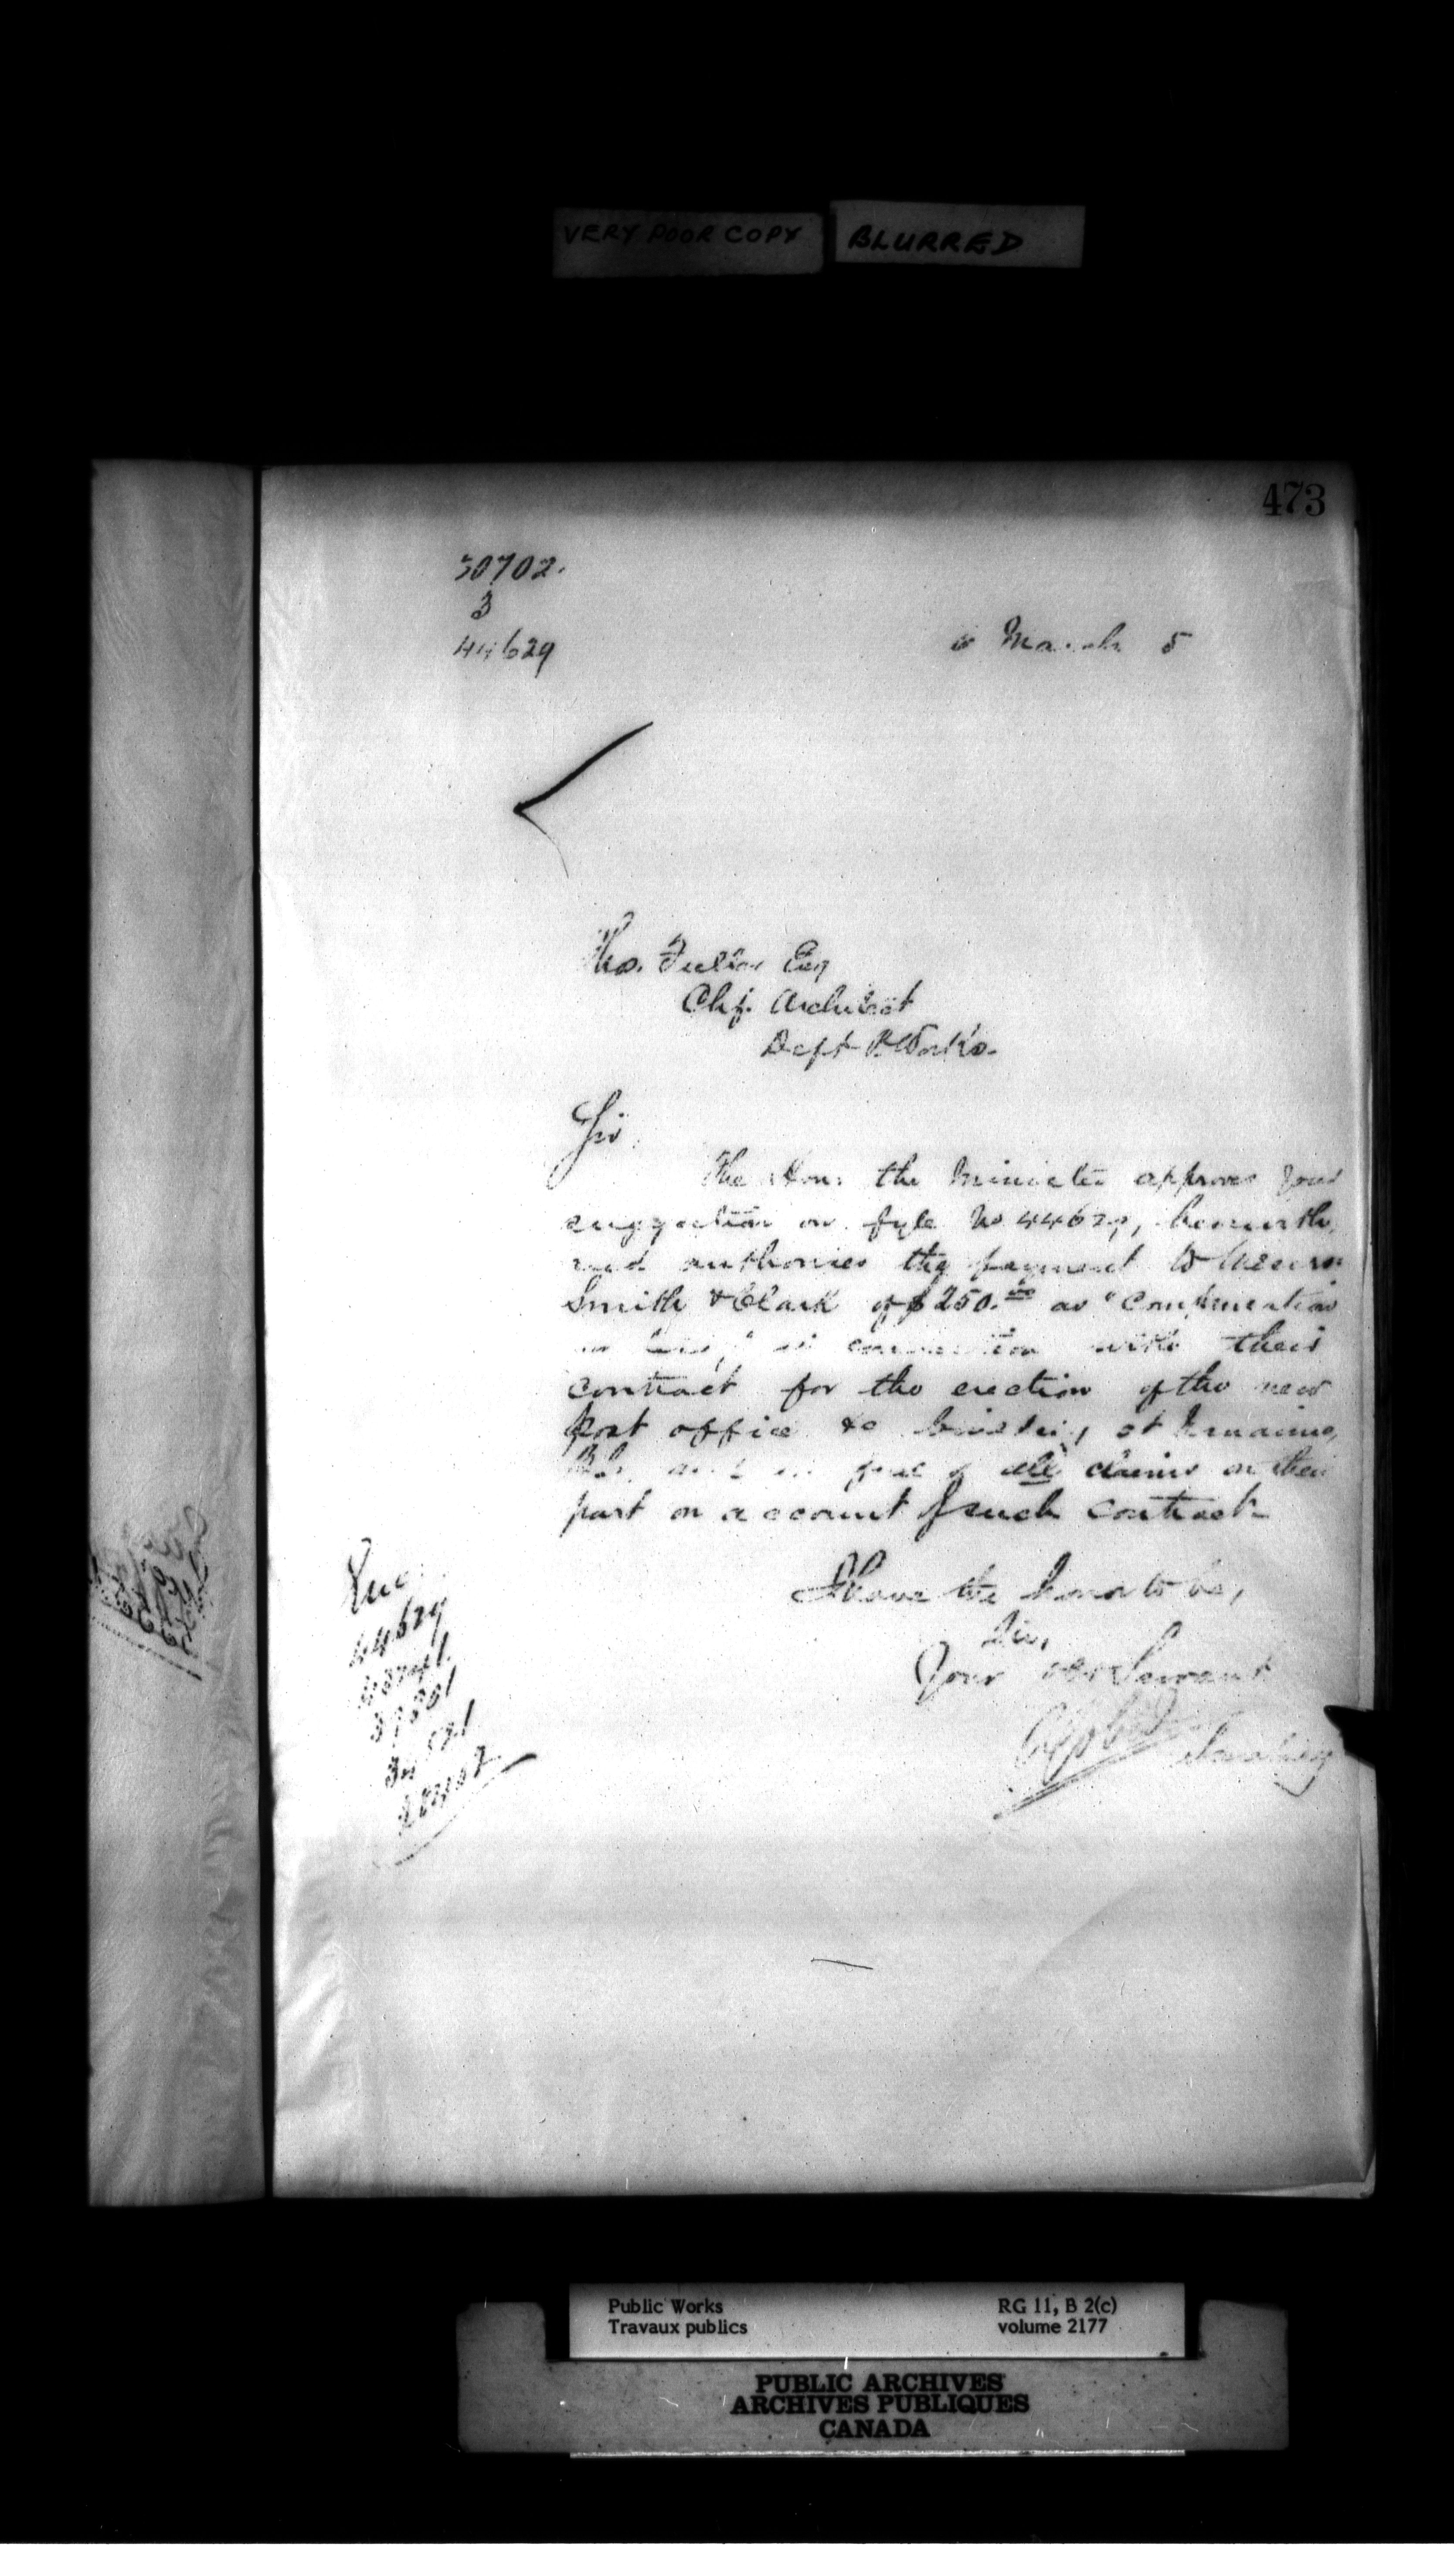 VERY POOR COPY BLURRED
473
30702.
3
44629
March 5
Thos. Fuller Esq
Chf. Architect
Dept P. Works.
Sir,
The Hon: the Minister approves your
suggestion on fyle No 44629, herewith,
and authorises the payment to Messrs
Smith & Clark of $250.00 as "Compensation
in connection with their
contract for the erection of the new
post office &c building at
and in full of all claims on their
part on account of such contract
I have the honor to be,
Sir,
Your obt Servant
Secretary
Enc.
44629
Public Works
Travaux publics
RG 11, B 2(c)
volume 2177
PUBLIC ARCHIVES
ARCHIVES PUBLIQUES
CANADA